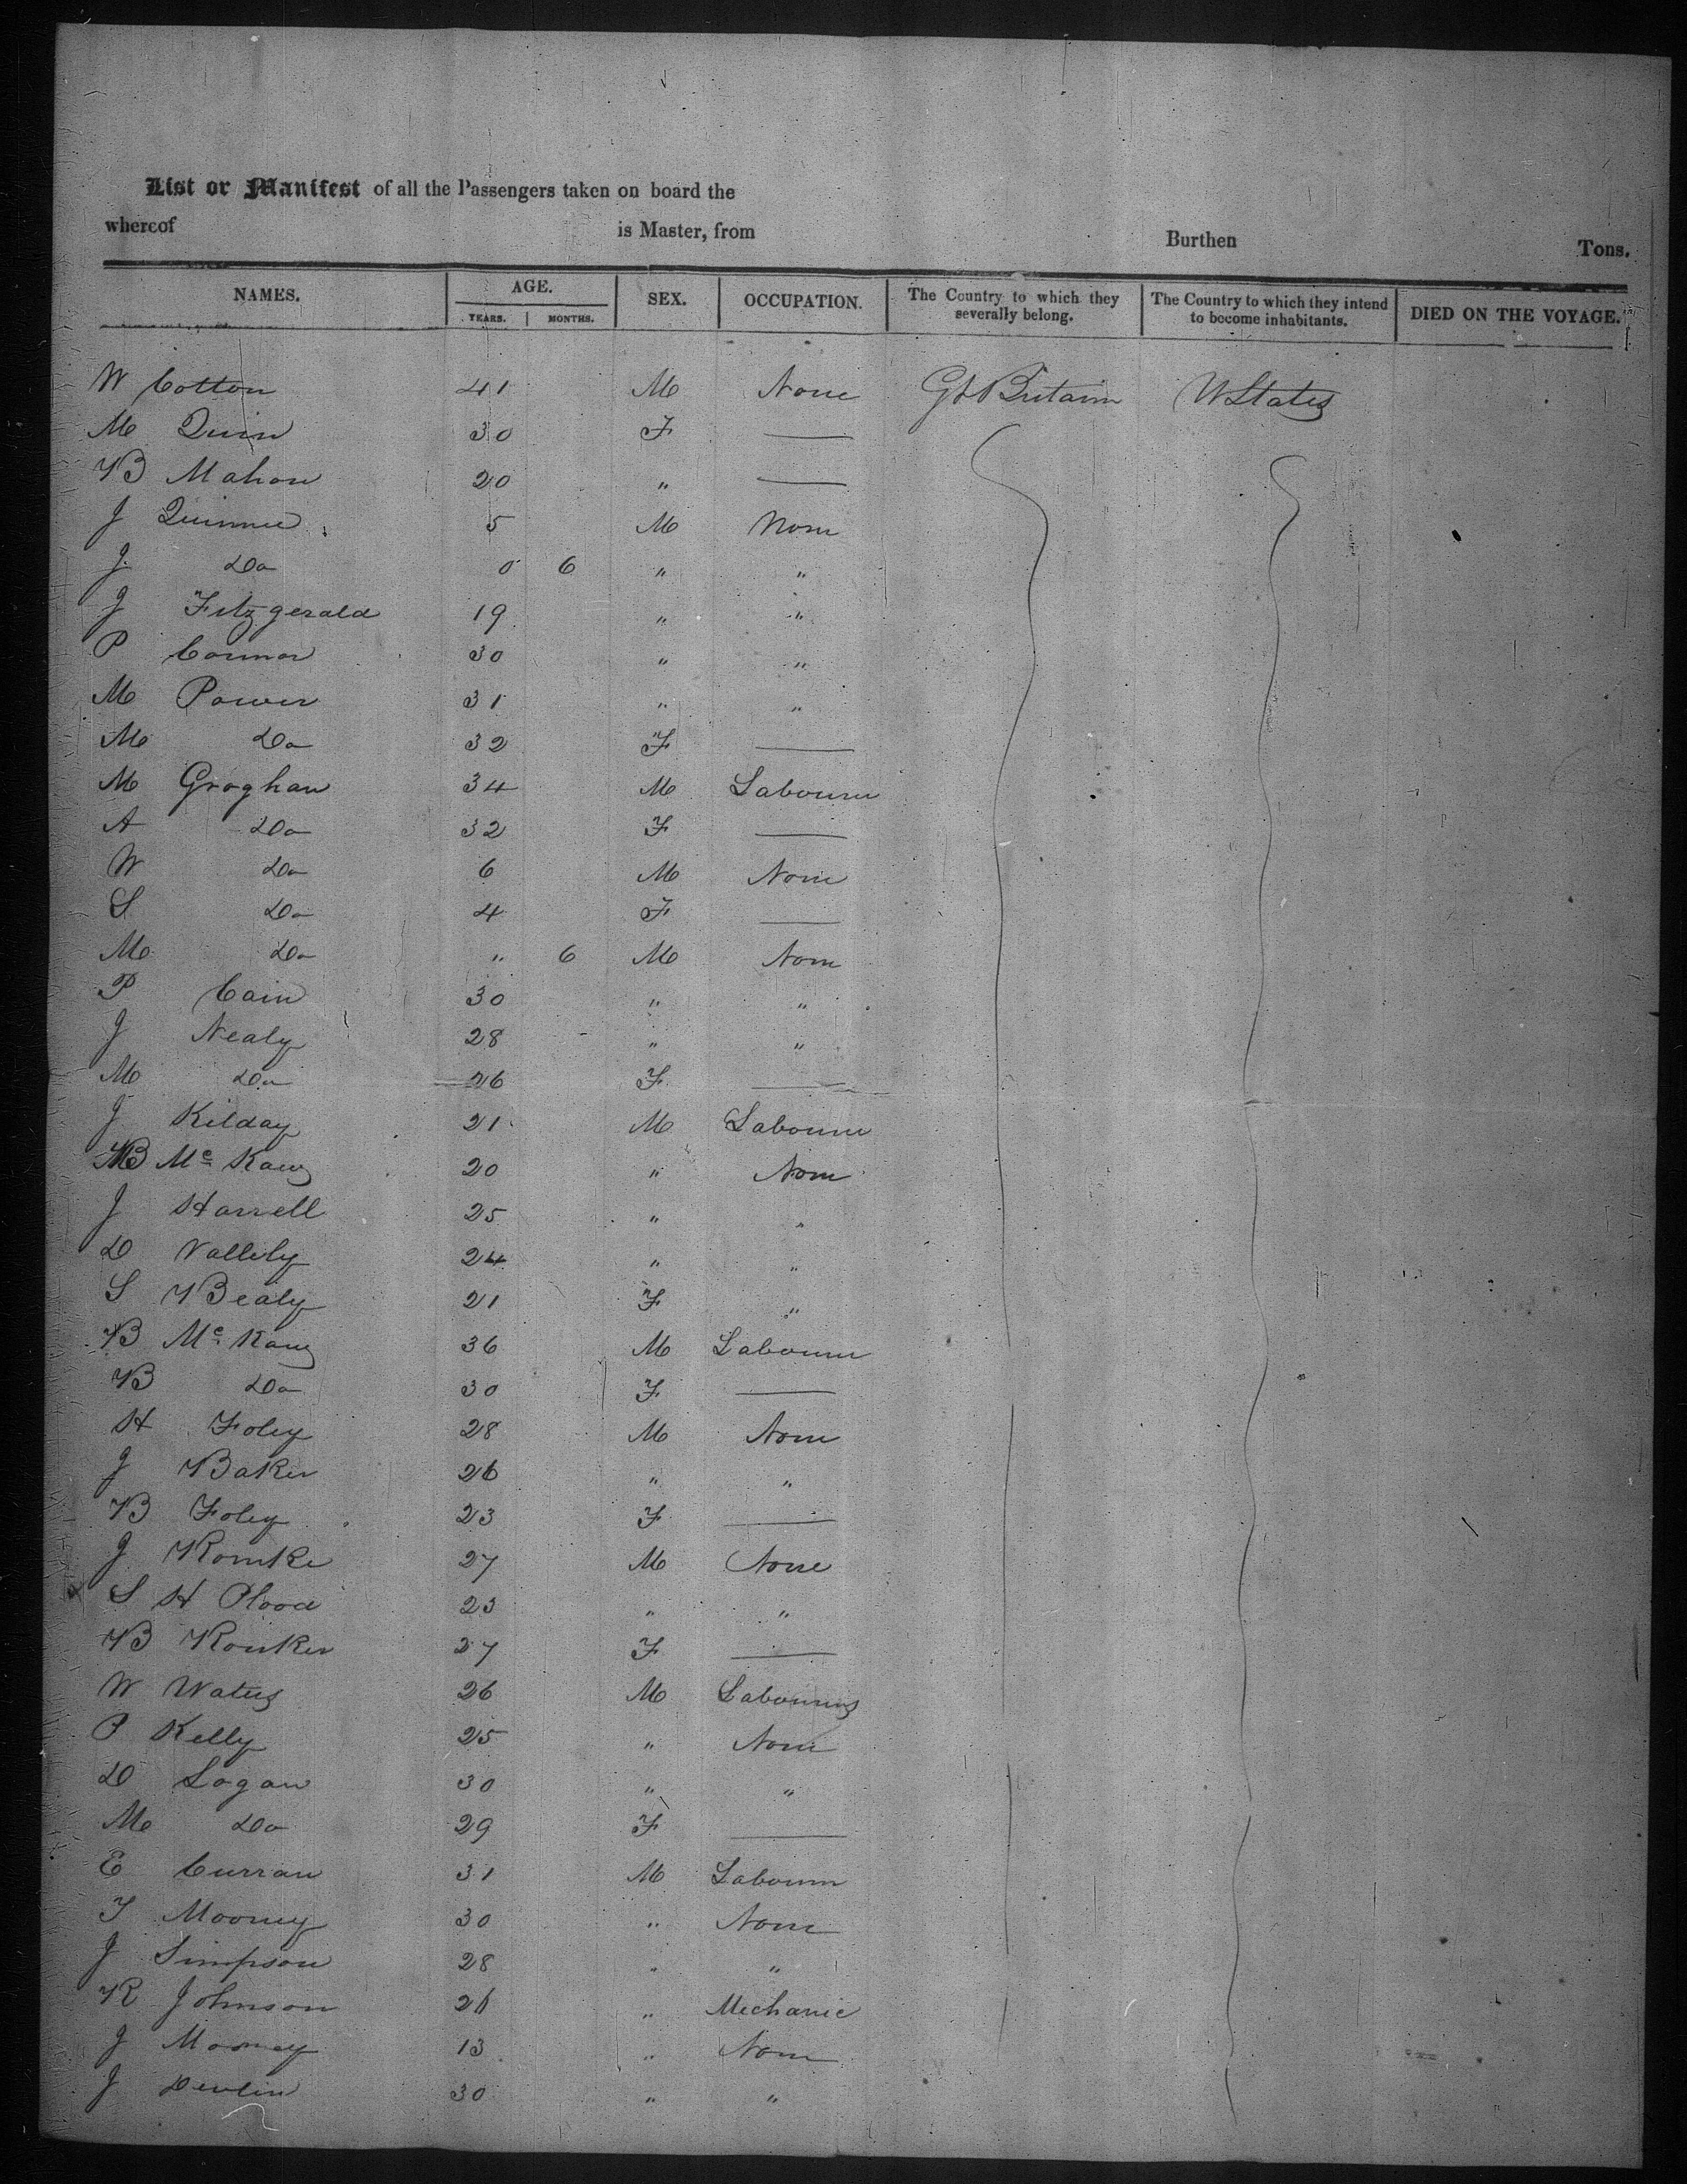 List or Manifest of all the Passengers taken on board the
whereof is Master, from Burthen Tons.
NAMES. AGE. SEX. OCCUPATION. The Country to which they severally belong. The Country to which they intend to become inhabitants. DIED ON THE VOYAGE.
YEARS. MONTHS.
W Cotton 41 M None Gt Britain U States
M Quin 30 F —
B Mahon 20 " —
J 5 M None
J. Do 0 6 " "
J Fitzgerald 19 " "
P Connor 30 " "
M Power 31 " "
M Do 32 F —
M Groghan 34 M Labourer
A Do 32 F —
W Do 6 M None
S Do 4 F —
M Do " 6 M None
P Cain 30 " "
J Nealy 28 " "
M Do 26 F —
J Kilday 21 M Labourer
B Mc Kay 20 " None
J Harrell 25 " "
D Vallily 24 " "
S Bealy 21 F "
B Mc Kay 36 M Labourer
B Do 30 F —
H Foley 28 M None
J Baker 26 " "
B Foley 23 F —
J 27 M None
S H Plood 23 " "
B 27 F —
W Waters 26 M Labourers
P Kelly 25 " None
D Logan 30 " "
M Do 29 F —
E Curran 31 M Labourer
T Mooney 30 " None
J Simpson 28 " "
R Johnson 26 " Mechanic
J Mooney 13 " None
J Devlin 30 " "